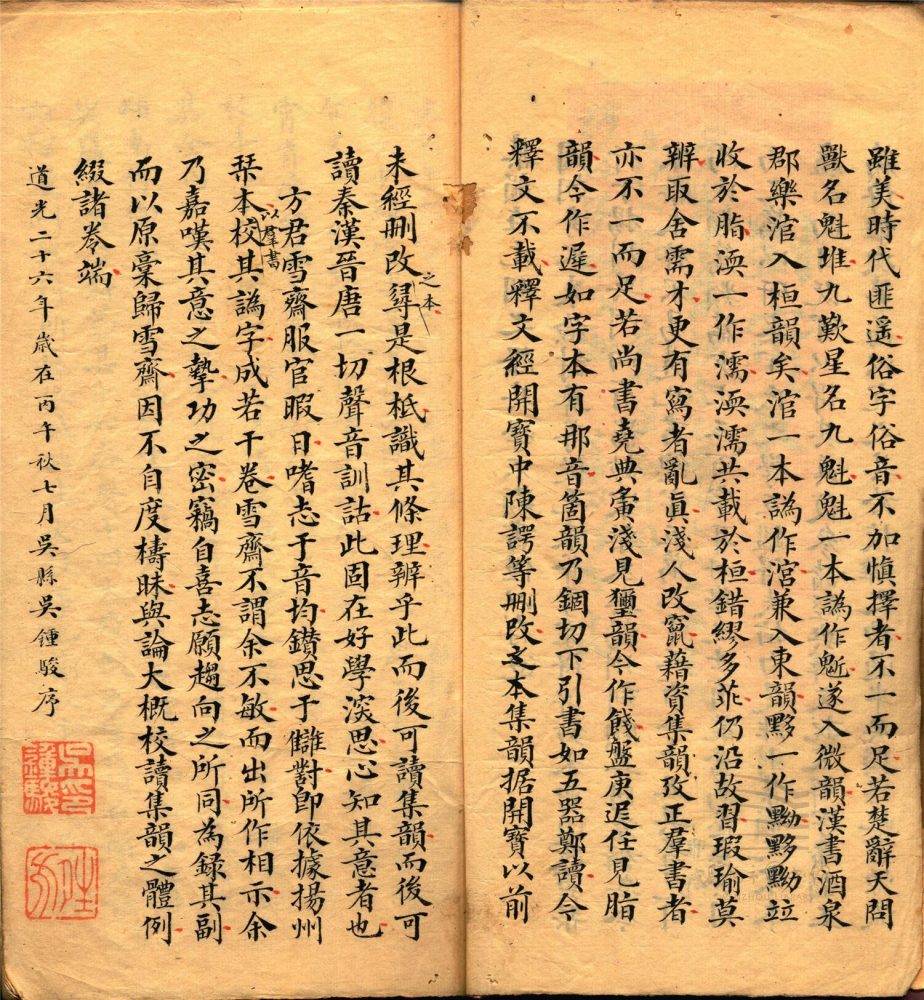 雖美時代匪遥俗字俗音不加慎擇者不一而足若楚辭天問
獸名魁堆九歎星名九魁魁一本譌作鬿遂入微韻漢書酒泉
郡樂涫入桓韻矣涫一本譌作涫兼入東韻黟一作黝黟黝竝
收於脂渜一作濡渜濡共載於桓錯繆多茈仍沿故習瑕瑜莫
辨取舍需才更有寫者亂眞淺人改竄藉資集韻攷正羣書者
亦不一而足若尚書堯典夤淺見璽韻今作餞盤庚迟任見脂
韻今作遲如字本有那音箇韻乃錮切下引書如五器鄭讀今
釋文不載釋文經開寶中陳諤等刪改之本集韻据開寶以前
未經刪改之本尋是根柢識其條理辨乎此而後可讀集韻而後可
讀秦漢晉唐一切聲音訓詁此固在好學深思心知其意者也
方君雪齋服官暇日嗜志于音均鑽思于讎對卽依據揚州
栞本以羣書校其譌字成若干卷雪齋不謂余不敏而出所作相示余
乃嘉嘆其意之摯功之密竊自喜志願趨向之所同為録其副
而以原稾歸雪齋因不自度檮昧與論大概校讀集韻之體例
綴諸卷端
道光二十六年歲在丙午秋七月吳縣吳鍾駿序
吳印鍾駿